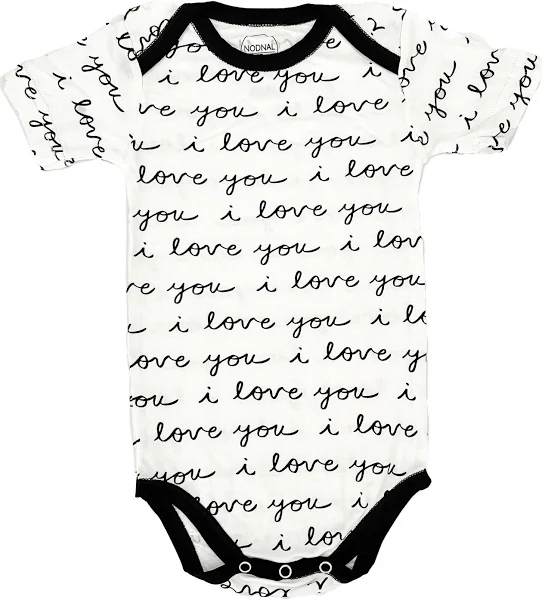 NODNAL
i love you i
ve you i love
u i love you i
love you i love
you i love you
i love you i lov
e you i love you
i love you i l
ove you i love y
ou i love you i
love you i love
you i love you
ove you i
i lov
i love you
you i love
love
you